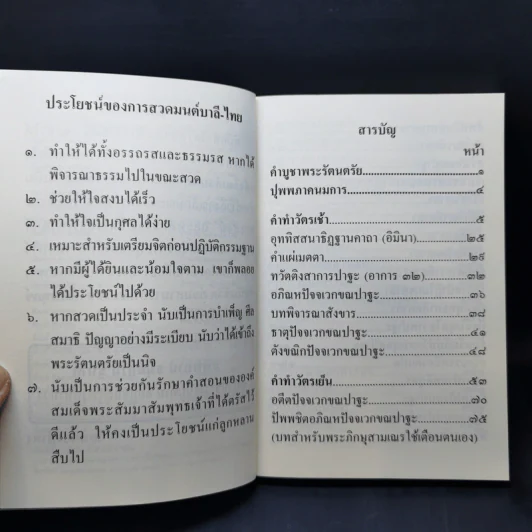 ประโยชน์ของการสวดมนต์บาลี-ไทย
๑. ทำให้ได้ทั้งอรรถรสและธรรมรส หากได้
พิจารณาธรรมไปในขณะสวด
๒. ช่วยให้ใจสงบได้เร็ว
๓. ทำให้ใจเป็นกุศลได้ง่าย
๔. เหมาะสำหรับเตรียมจิตก่อนปฏิบัติกรรมฐาน
๕. หากมีผู้ได้ยินและน้อมใจตาม เขาก็พลอย
ได้ประโยชน์ไปด้วย
๖. หากสวดเป็นประจำ นับเป็นการบำเพ็ญ ศีล
สมาธิ ปัญญาอย่างมีระเบียบ นับว่าได้เข้าถึง
พระรัตนตรัยเป็นนิจ
๗. นับเป็นการช่วยกันรักษาคำสอนขององค์
สมเด็จพระสัมมาสัมพุทธเจ้าที่ได้ตรัสไว้
ดีแล้ว ให้คงเป็นประโยชน์แก่ลูกหลาน
สืบไป
สารบัญ
หน้า
คำบูชาพระรัตนตรัย...............................๑
ปุพพภาคนมการ...................................๔
คำทำวัตรเช้า.......................................๕
อุททิสสนาธิฏฐานคาถา (อิมินา)...........๒๕
คำแผ่เมตตา.......................................๒๙
ทวัตติงสาการปาฐะ (อาการ ๓๒)..........๓๒
อภิณหปัจจเวกขณปาฐะ.....................๓๖
บทพิจารณาสังขาร.............................๓๘
ธาตุปัจจเวกขณปาฐะ.........................๔๑
ตังขณิกปัจจเวกขณปาฐะ....................๔๘
คำทำวัตรเย็น.....................................๕๓
อตีตปัจจเวกขณปาฐะ........................๗๐
ปัพพชิตอภิณหปัจจเวกขณปาฐะ..........๗๕
(บทสำหรับพระภิกษุสามเณรใช้เตือนตนเอง)